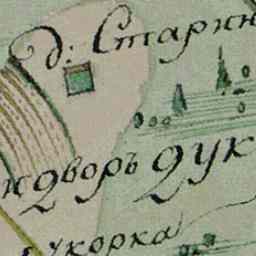 д: Старин
дворъ Дук
укорка